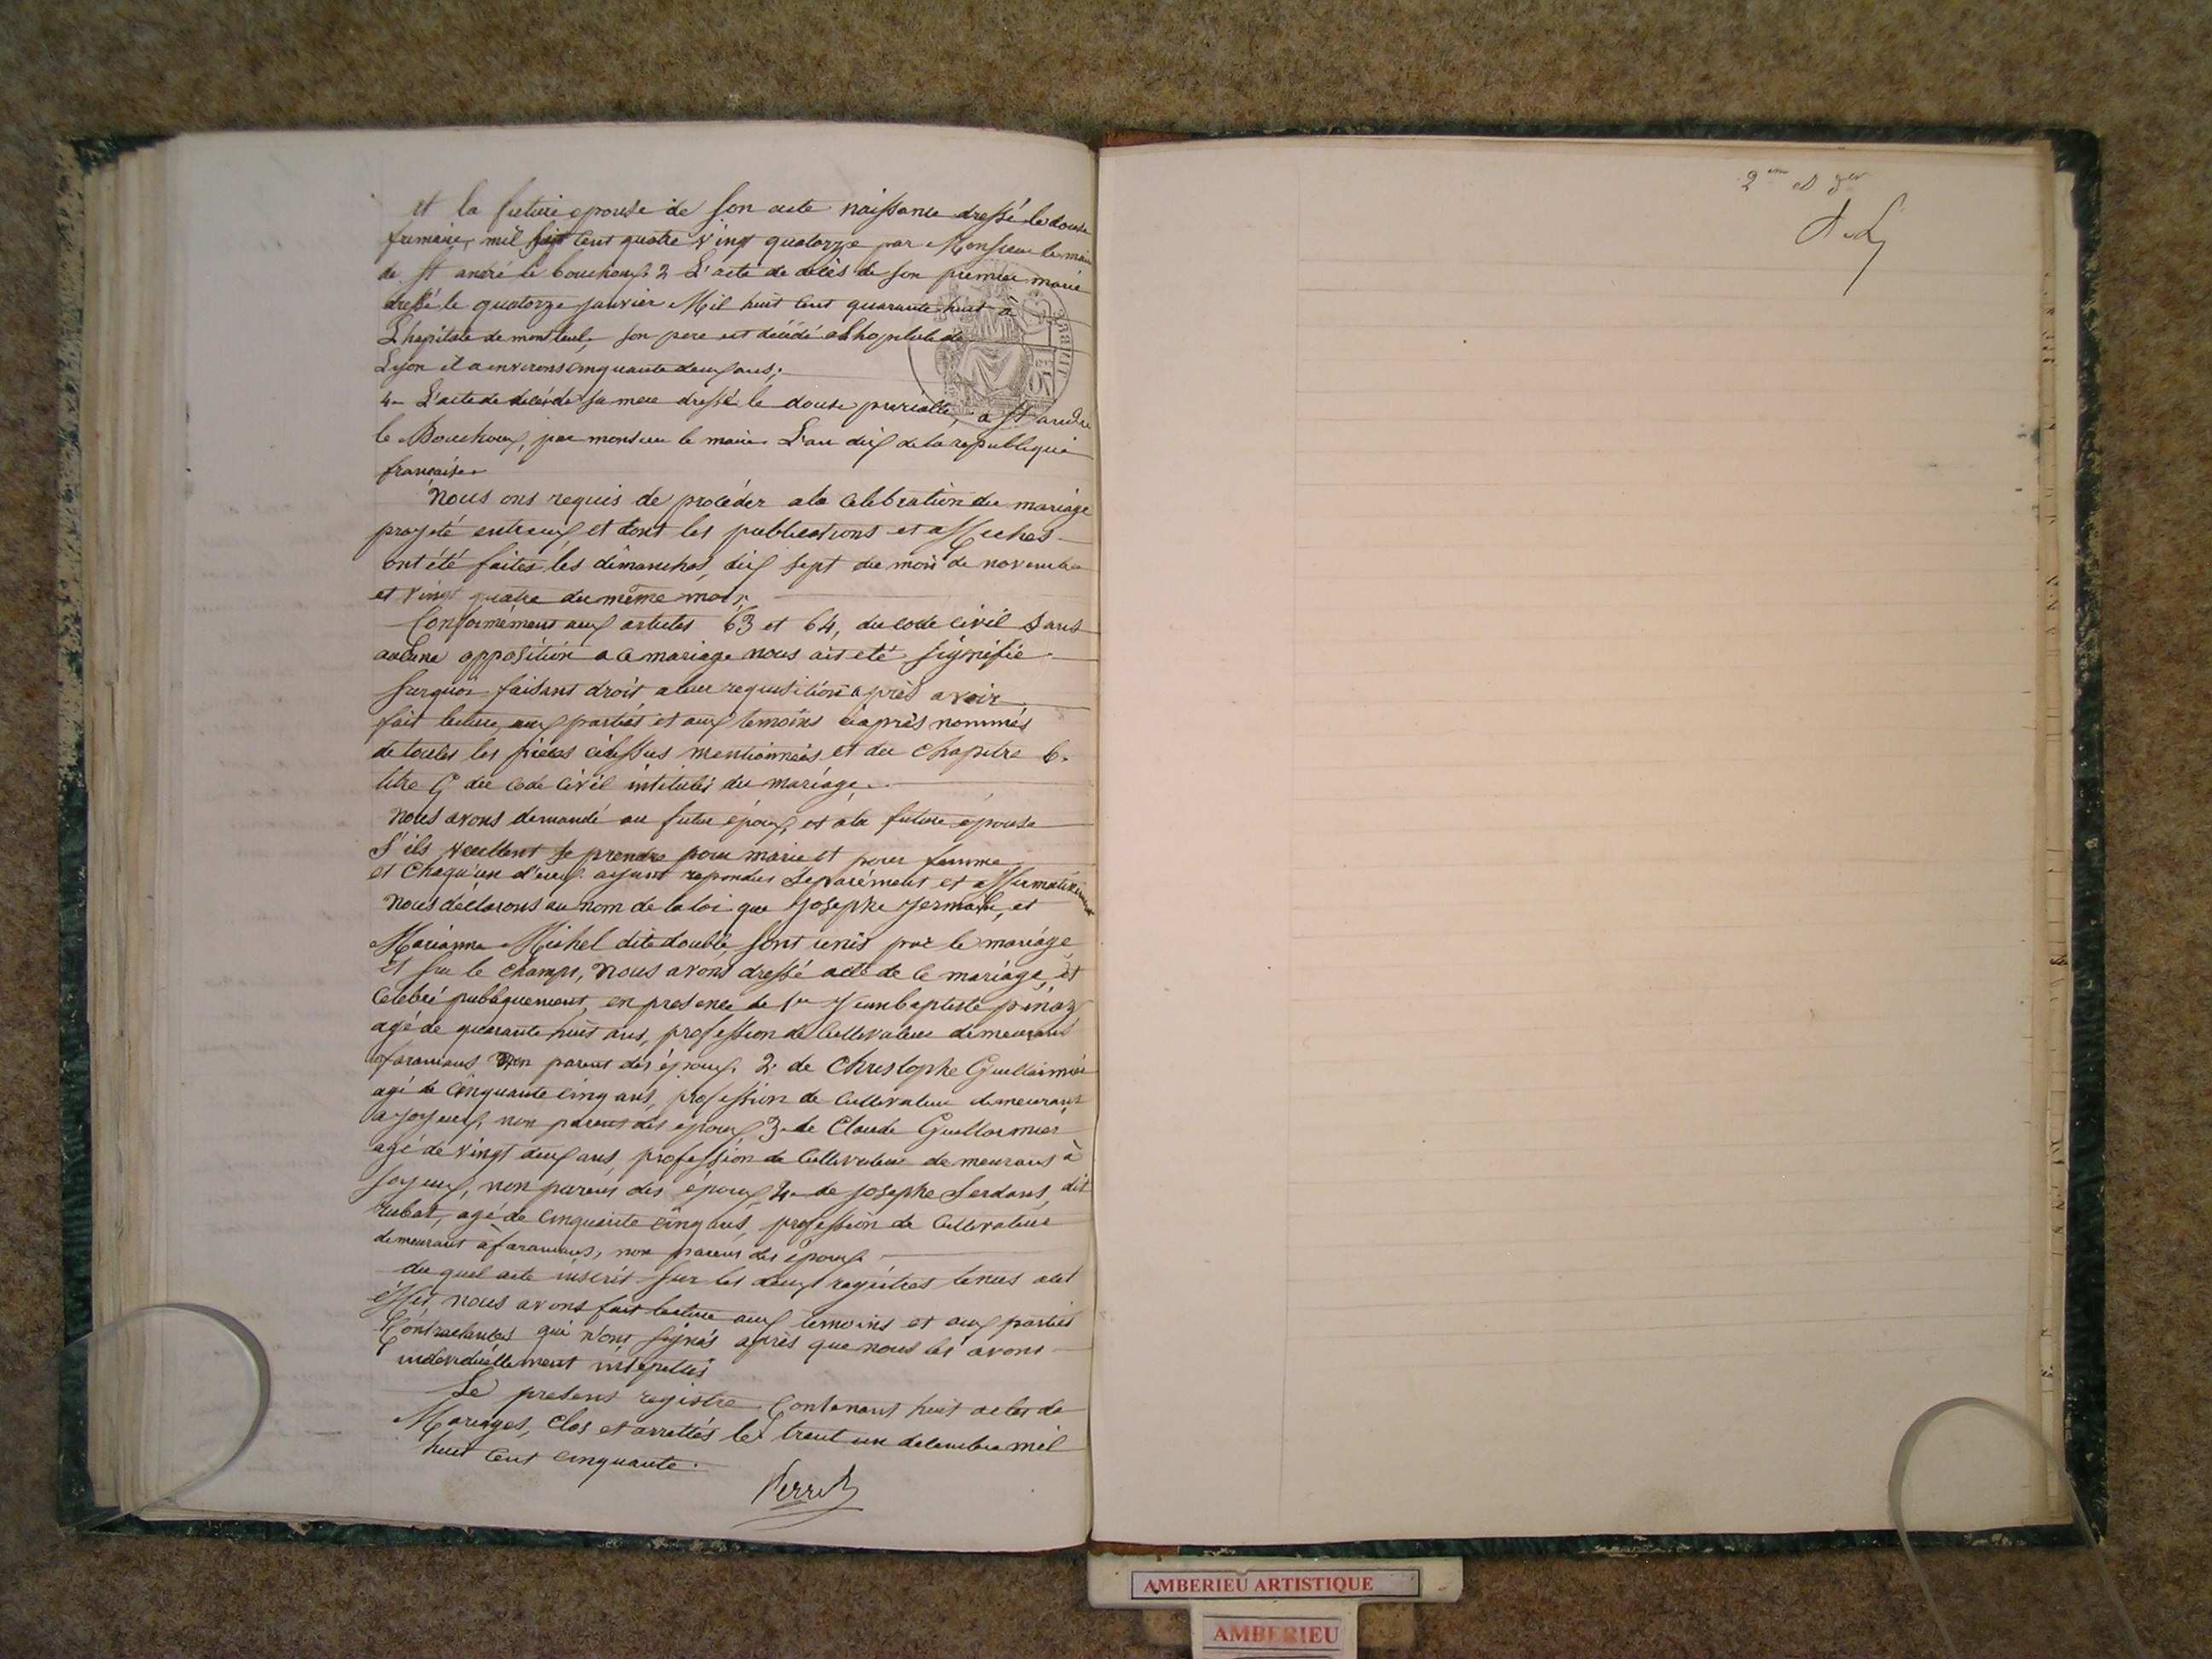 et la future epouse de son acte naissance dressé le douse
frimaire, mil sept cent quatre vingt quatorze par Monsieur le maire
de St andré le bouchoux. 2 L'acte de décès de son premier marié
dressé le quatorze janvier Mil huit cent quarante huit à
L'hopitale de montluel, son pere est décédé a L'hopitale de
Lyon il a environs cinquante deux ans;
4. L'acte de décès de sa mere dressé le douse, a St andré
le Bouchoux, par monsieur le maire. L'an dix de la republique
française.
Nous ons requis de procéder a la celebration du mariage
projeté entreux et dont les publications et affiches
ont été faites les dimanches, dix sept du mois de novembre
et vingt quatre du même mois,
Conformément aux articles 63 et 64, du code civil sans
aucune opposition a ce mariage nous ait été signifié.
Surquoi faisant droit a leur requisition après avoir
fait lecture aux parties et aux temoins ciaprès nommés
de toutes les pièces cidessus mentionnées et du chapitre 6.
titre 5 du code civil intitulés du mariage.
nous avons demandé au futur époux, et a la future épouse
S'ils veullent se prendre pour marie et pour femme
et chaqu'un d'eux ayant repondus separément et affirmativement
nous déclarons au nom de la loi que Josephe Jermain, et
Marianne Michel dite double, sont unis par le mariage
et sur le champs, nous avons dressé acte de ce mariage, et
celebré publiquement, en presence de 1er Jeanbaptiste pinaz
agé de quarante huit ans, profession de Cultivateur demeurant
a faramans non parent des époux. 2. de Christophe Guillarmier
agé de cinquante cinq ans, profession de cultivateur demeurant
a joyeux, non parent des époux, 3. de Claude Guillarmier
agé de vingt deux ans, profession de Cultivateur demeurans à
joyeux, non parens des époux, 4. de josephe Serdans, dit
Rubat, agé de cinquante cinq ans, profession de Cultivateur
demeurant à faramans, non parens des époux.
du quel acte inscrit sur les deux registres tenus a cet
effet, nous avons fait lecture aux temoins et aux parties
Contractantes qui n'ont signés après que nous les avons
individuéllement intepellés
Le present registre Contenant huit actes de
Mariages, clos et arrettés le trent un decembre mil
huit cent cinquante.
Perret
2em et der
AMBERIEU ARTISTIQUE
AMBERIEU